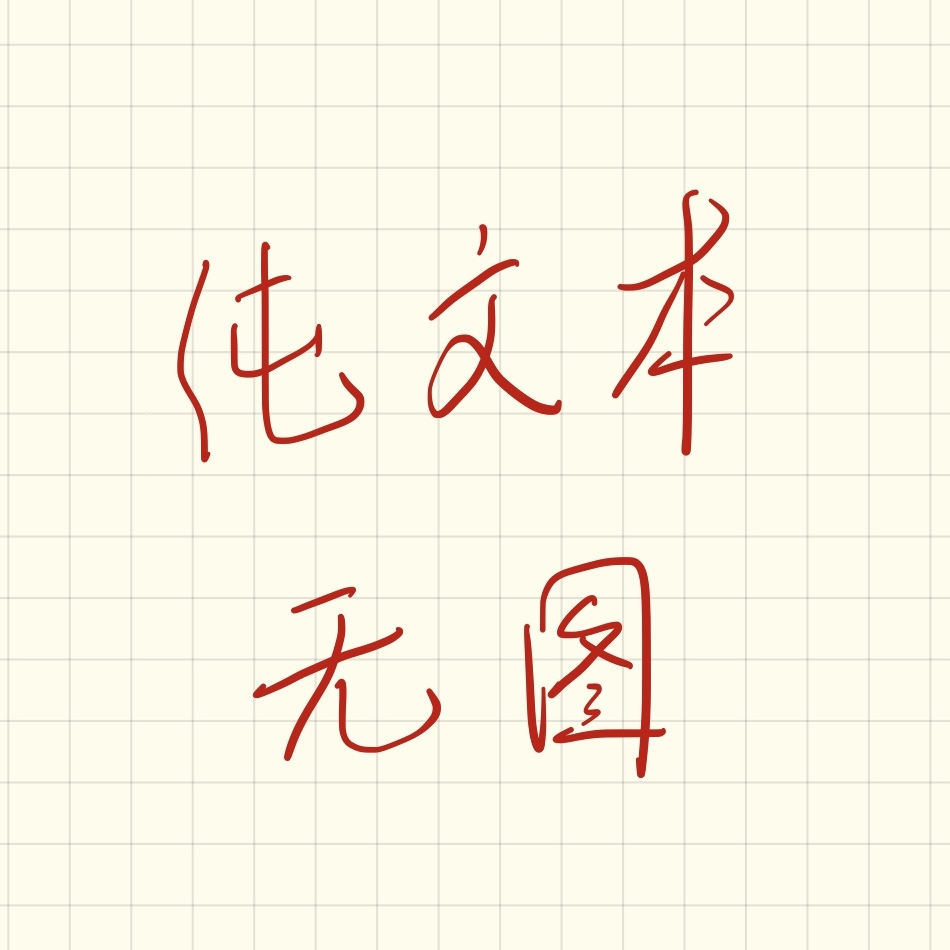 纯文本
无图